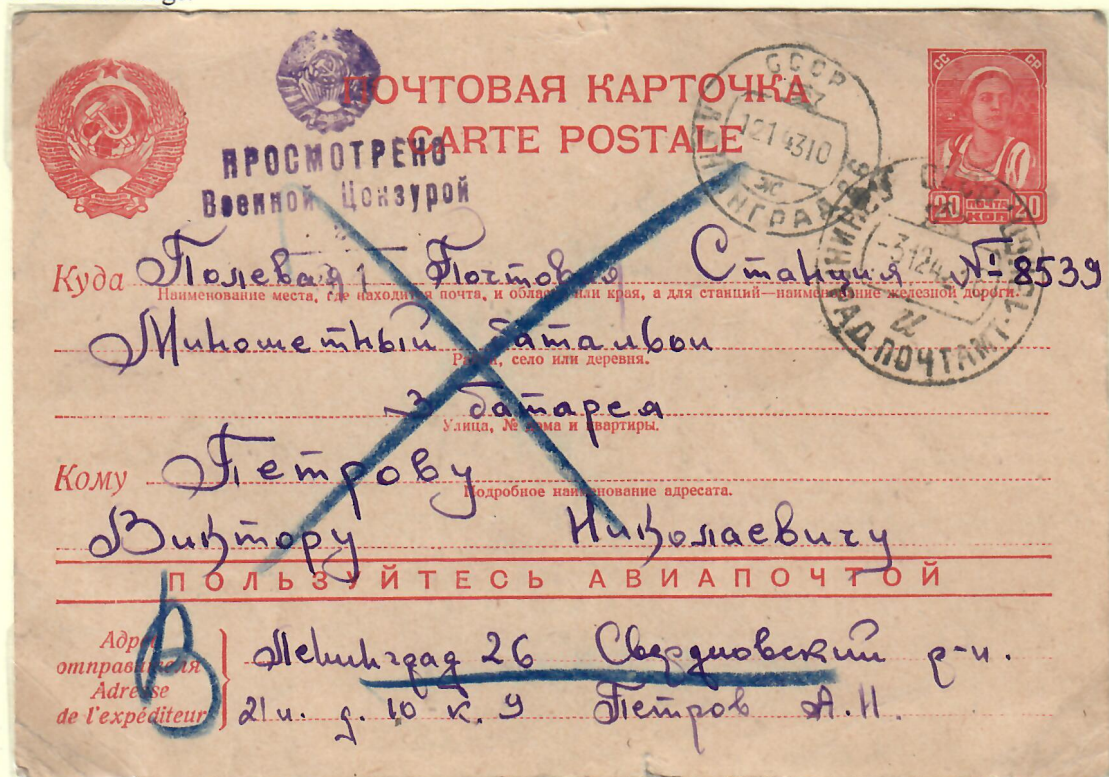 ПОЧТОВАЯ КАРТОЧКА
CARTE POSTALE
ПРОСМОТРЕНО
Военной Цензурой
СССР
12 1 43 10
ЛЕНИНГРАД
СС СР
20 ПОЧТА КОП 20
Куда Полевая Почтовая Станция № 8539
Наименование места, где находится почта, и области или края, а для станций—наименование железной дороги.
Минометный батальон
Район, село или деревня.
3 батарея
Улица, № дома и квартиры.
Кому Петрову
Подробное наименование адресата.
Виктору Николаевичу
ПОЧТАМТ-1
ПОЛЬЗУЙТЕСЬ АВИАПОЧТОЙ
В
Адрес
отправителя
Adresse
de l'expéditeur
Ленинград 26 Свердловский р-н.
21 л. д. 10 к. 9 Петров А.Н.